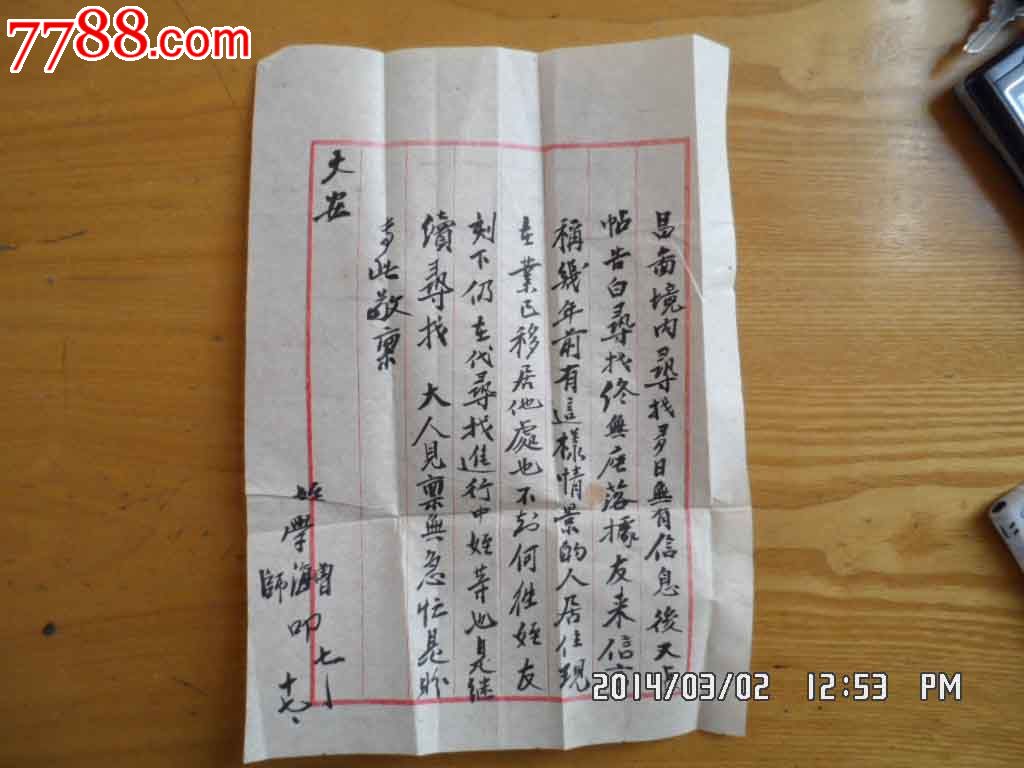 7788.com
昌南境内尋找多日無有信息後又
帖告白尋找終無座落據友来信言
稱幾年前有這樣情景的人居住現
在業已移居他處也不知何往姪友
刻下仍在代尋找進行中姪等也見继
續尋找 大人見稟無急忙是盼
专此敬稟
天安
姪 學曾 海師 叩 七 十七
2014/03/02 12:53 PM